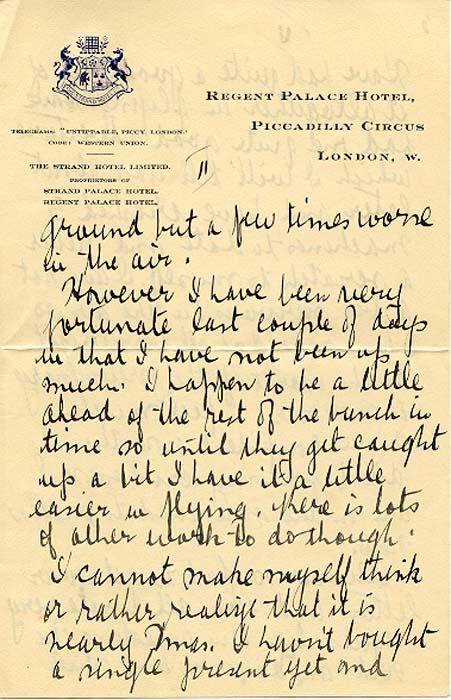 THE STRAND HOTEL LTD
REGENT PALACE HOTEL,
PICCADILLY CIRCUS
LONDON, W.
TELEGRAMS: "UNTIPPABLE, PICCY, LONDON."
CODE: WESTERN UNION.
THE STRAND HOTEL LIMITED.
PROPRIETORS OF
STRAND PALACE HOTEL.
REGENT PALACE HOTEL.
11
ground but a few times worse
in the air.
However I have been very
fortunate last couple of days
in that I have not been up
much. I happen to be a little
ahead of the rest of the bunch in
time so until they get caught
up a bit I have it a little
easier in flying. There is lots
of other work to do though.
I cannot make myself think
or rather realize that it is
nearly Xmas. I havn't bought
a single present yet and